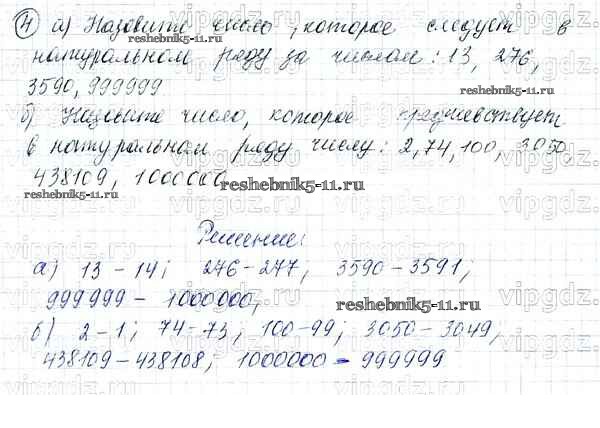 4 а) Назовите число, которое следует в
натуральном ряду за числом: 13, 276,
3590, 999999
reshebnik5-11.ru
б) Назовите число, которое предшествует
в натуральном ряду числу: 2, 74, 100, 3050,
reshebnik5-11.ru
438109, 1000000
reshebnik5-11.ru
Решение:
а) 13 – 14; 276 – 277; 3590 – 3591;
999999 – 1000000;
reshebnik5-11.ru
б) 2 – 1; 74 – 73; 100 – 99; 3050 – 3049;
438109 – 438108; 1000000 – 999999
vipgdz.ru